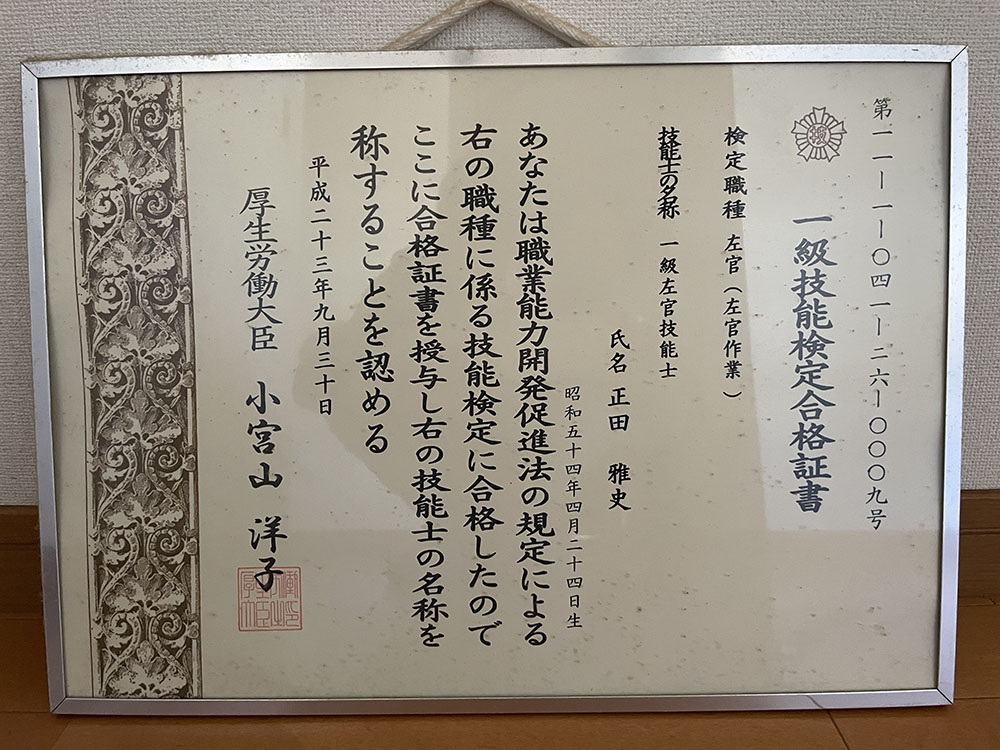 第一一一一〇四一一二六一〇〇〇九号
一級技能検定合格証書
検定職種 左官（左官作業）
技能士の名称 一級左官技能士
氏名 正田 雅史
昭和五十四年四月二十四日生
あなたは職業能力開発促進法の規定による
右の職種に係る技能検定に合格したので
ここに合格証書を授与し右の技能士の名称を
称することを認める
平成二十三年九月三十日
厚生労働大臣 小宮山 洋子